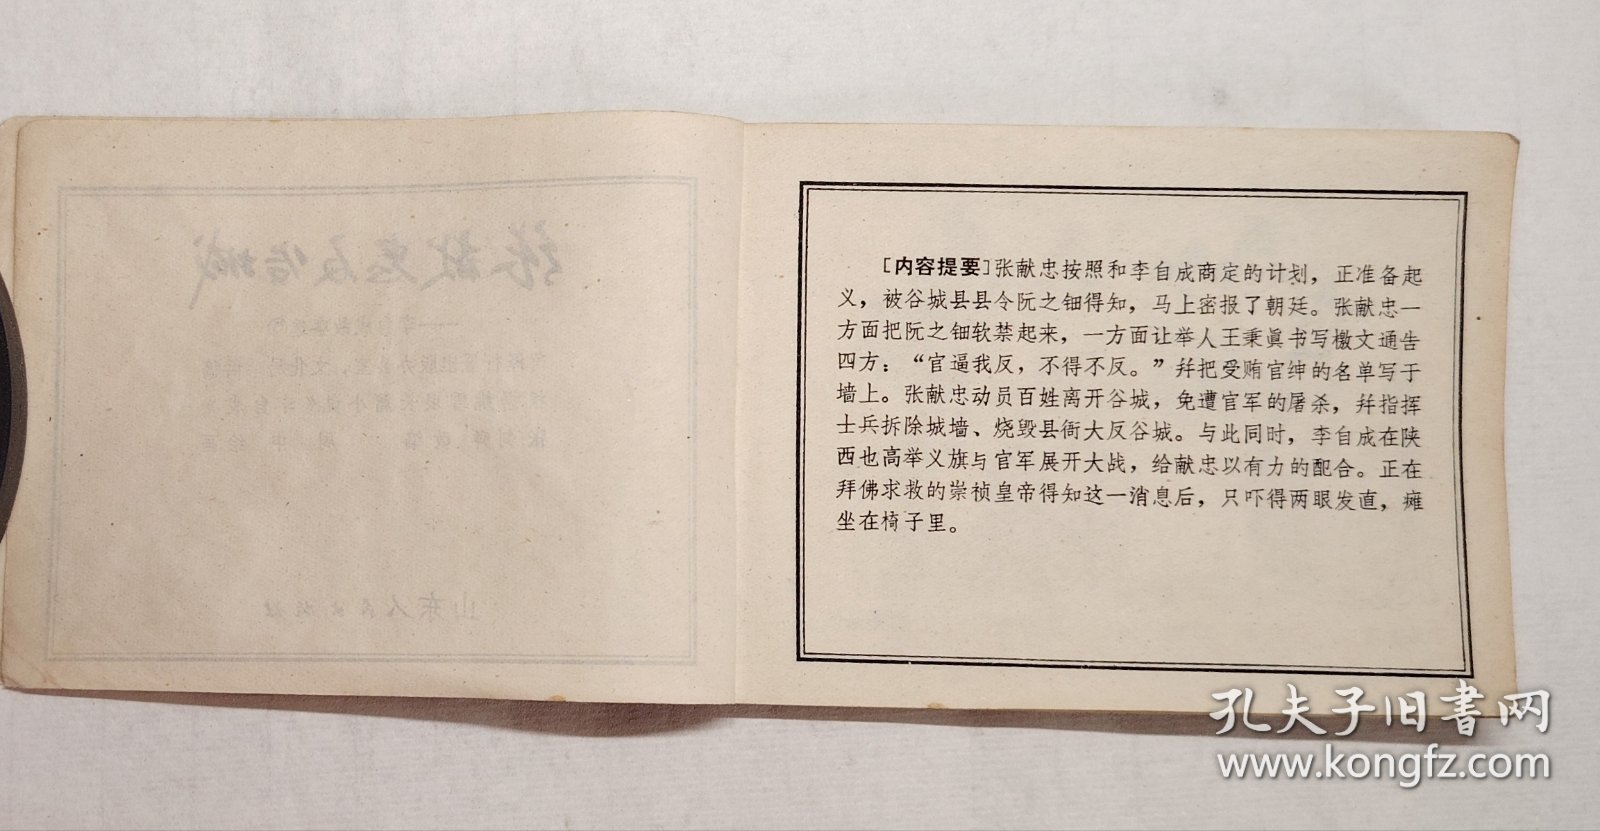 [内容提要]张献忠按照和李自成商定的计划，正准备起
义，被谷城县县令阮之钿得知，马上密报了朝廷。张献忠一
方面把阮之钿软禁起来，一方面让举人王秉眞书写檄文通告
四方：“官逼我反，不得不反。”幷把受贿官绅的名单写于
墙上。张献忠动员百姓离开谷城，免遭官军的屠杀，幷指挥
士兵拆除城墙、烧毁县衙大反谷城。与此同时，李自成在陕
西也高举义旗与官军展开大战，给献忠以有力的配合。正在
拜佛求救的崇祯皇帝得知这一消息后，只吓得两眼发直，瘫
坐在椅子里。
张献忠反谷城
山东人民出版社
孔夫子旧书网
www.kongfz.com